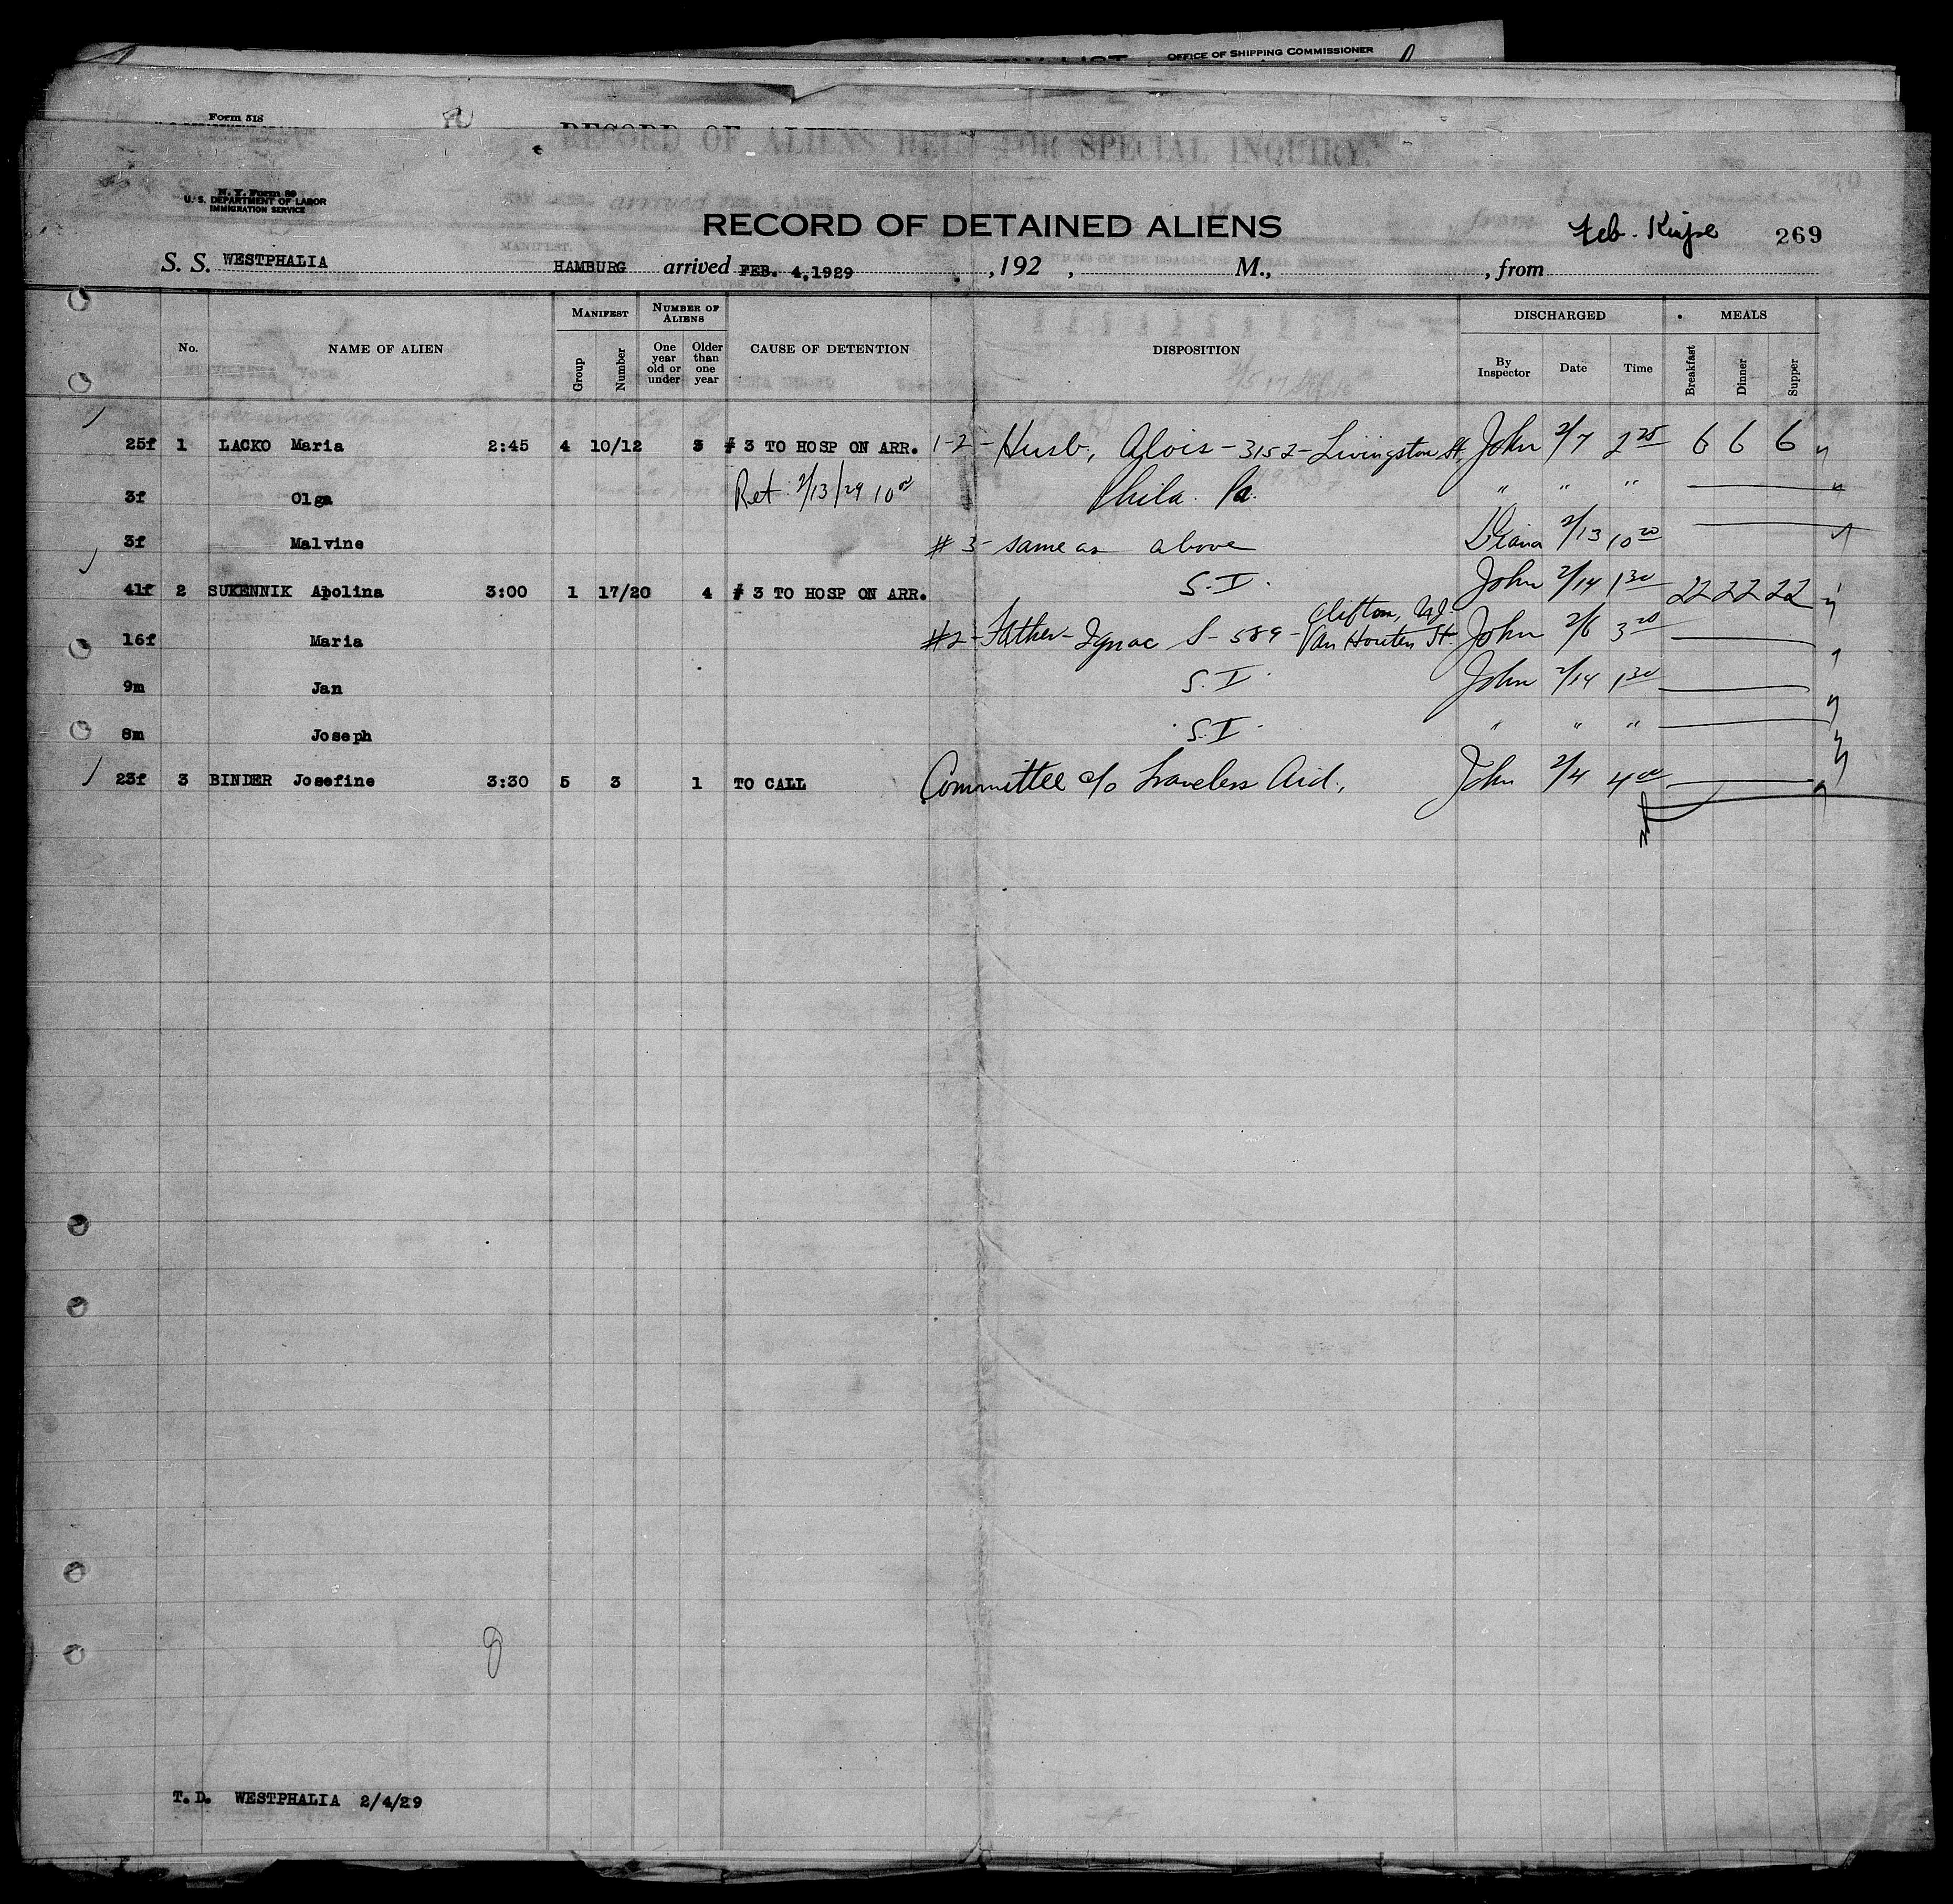 OFFICE OF SHIPPING COMMISSIONER
Form 518
RECORD OF ALIENS HELD FOR SPECIAL INQUIRY.
N. Y. Form 89
U. S. DEPARTMENT OF LABOR
IMMIGRATION SERVICE
RECORD OF DETAINED ALIENS
Feb. 269
S. S. WESTPHALIA HAMBURG arrived FEB. 4, 1929 , 192 , M., , from
No. NAME OF ALIEN MANIFEST Group Number NUMBER OF ALIENS One year old or under Older than one year CAUSE OF DETENTION DISPOSITION DISCHARGED By Inspector Date Time MEALS Breakfast Dinner Supper
25f 1 LACKO Maria 2:45 4 10/12 3 # 3 TO HOSP ON ARR. 1-2- Husb, Alois - 3152 - Livingston St. John 2/7 2 25 6 6 6
3f Olga Ret 2/13/29 10 00 Phila. Pa. " " "
3f Malvine # 3- same as above Diana 2/13 10 20
41f 2 SUKENNIK Apolina 3:00 1 17/20 4 # 3 TO HOSP ON ARR. S. I. John 2/14 1 30 22 22 22
16f Maria #2- Father- Ignac S- 589- Van Houten St. Clifton, N.J. John 2/6 3 20
9m Jan S. I. John 2/14 1 30
8m Joseph S. I. " " "
23f 3 BINDER Josefine 3:30 5 3 1 TO CALL Committee c/o Travelers Aid. John 2/4 4 00
8
T. D. WESTPHALIA 2/4/29